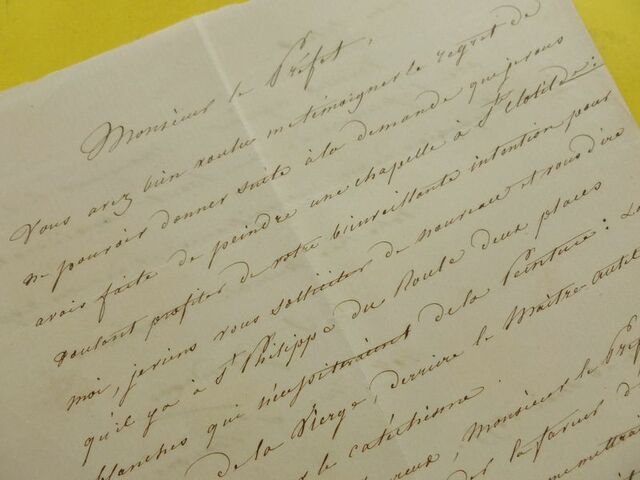 Monsieur le Préfet,
Vous avez bien voulu me témoigner le regret de
ne pouvoir donner suite à la demande que je vous
avais faite de peindre une chapelle à Ste Clotilde:
voulant profiter de votre bienveillante intention pour
moi, je viens vous solliciter de nouveau et vous dire
qu'il y a à St Philippe du Roule deux places
blanches qui nécessiteraient de la Peinture: La
de la Vierge, derrière le Maître-autel
le catéchisme.
Monsieur le Préf
la faveur d